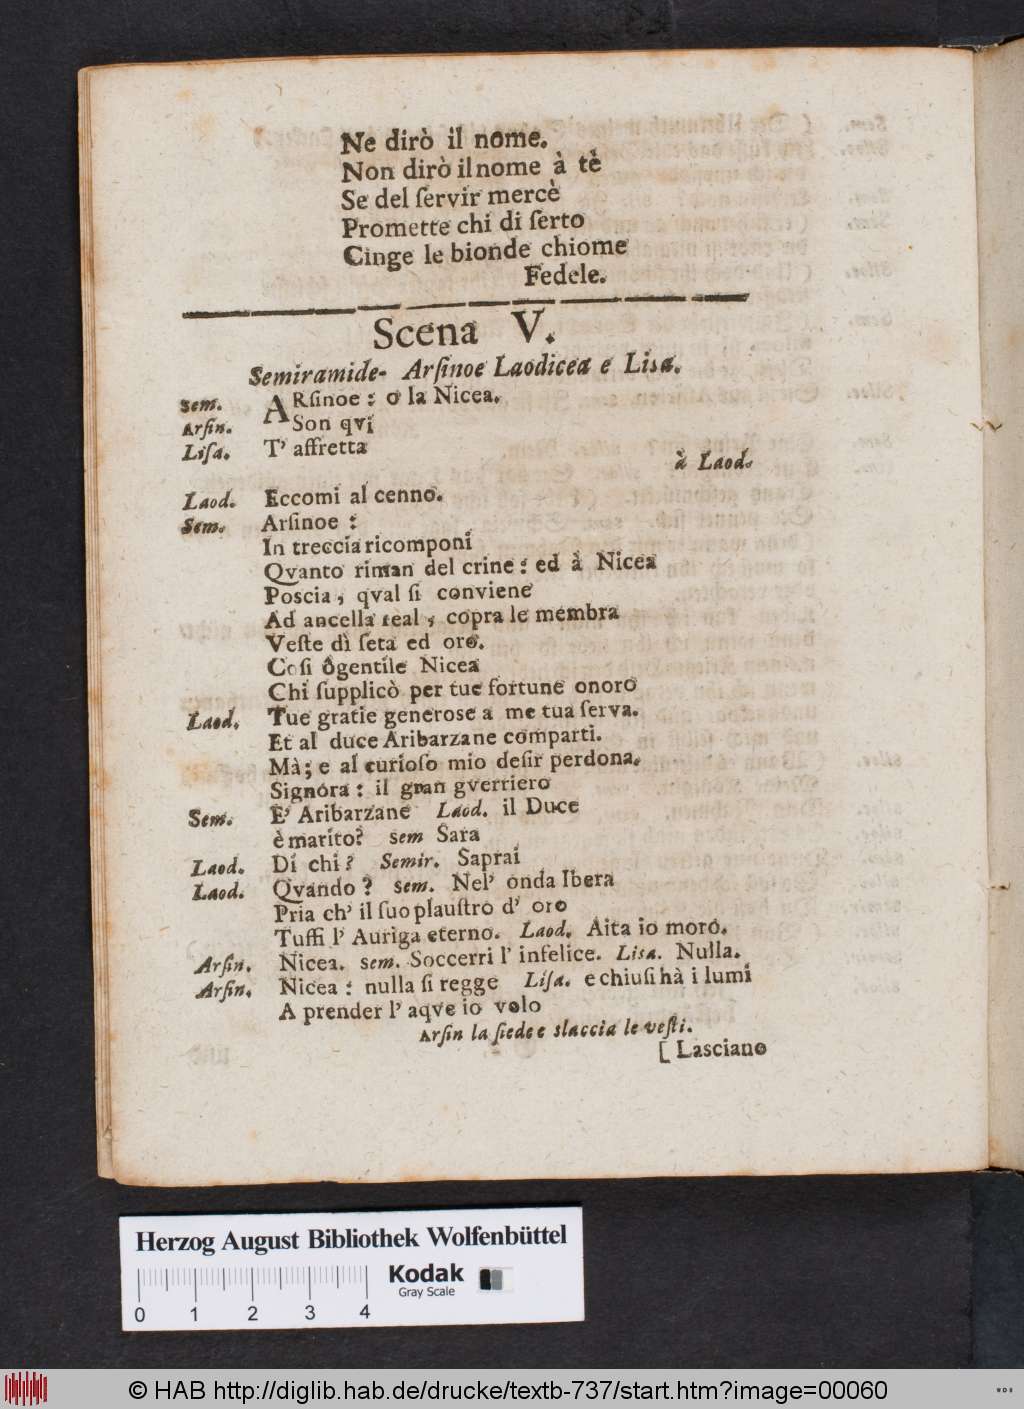 Ne dirò il nome.
Non dirò il nome à tè
Se del ſervir mercè
Promette chi di ſerto
Cinge le bionde chiome
Fedele.
Scena V.
Semiramide- Arſinoe Laodicea e Lisa.
Sem. ARſinoe: o la Nicea.
Arſin. Son qvi
Liſa. T' affretta
à Laod.
Laod. Eccomi al cenno.
Sem. Arſinoe:
In treccia ricomponi
Qvanto riman del crine: ed à Nicea
Poscia, qval ſi conviene
Ad ancella real, copra le membra
Veſte dì ſeta ed oro.
Coſi ôgentile Nicea
Chi ſupplicò per tue fortune onoro
Laod. Tue gratie generose a me tua ſerva.
Et al duce Aribarzane comparti.
Mà; e al curioſo mio deſir perdona.
Signora: il gran gverriero
Sem. E' Aribarzane Laod. il Duce
è marito? sem Sara
Laod. Di chi? Semir. Saprai
Laod. Qvando? sem. Nel' onda Ibera
Pria ch' il ſuo plauſtro d' oro
Tuffi l' Auriga eterno. Laod. Aita io moro.
Arſin. Nicea. sem. Soccerri l' infelice. Lisa. Nulla.
Arſin. Nicea: nulla ſi regge Liſa. e chiuſi hà i lumi
A prender l' aqve io volo
Arſin la ſiede e slaccia le veſti.
[ Lasciano
Herzog August Bibliothek Wolfenbüttel
Kodak
Gray Scale
0 1 2 3 4
© HAB http://diglib.hab.de/drucke/textb-737/start.htm?image=00060